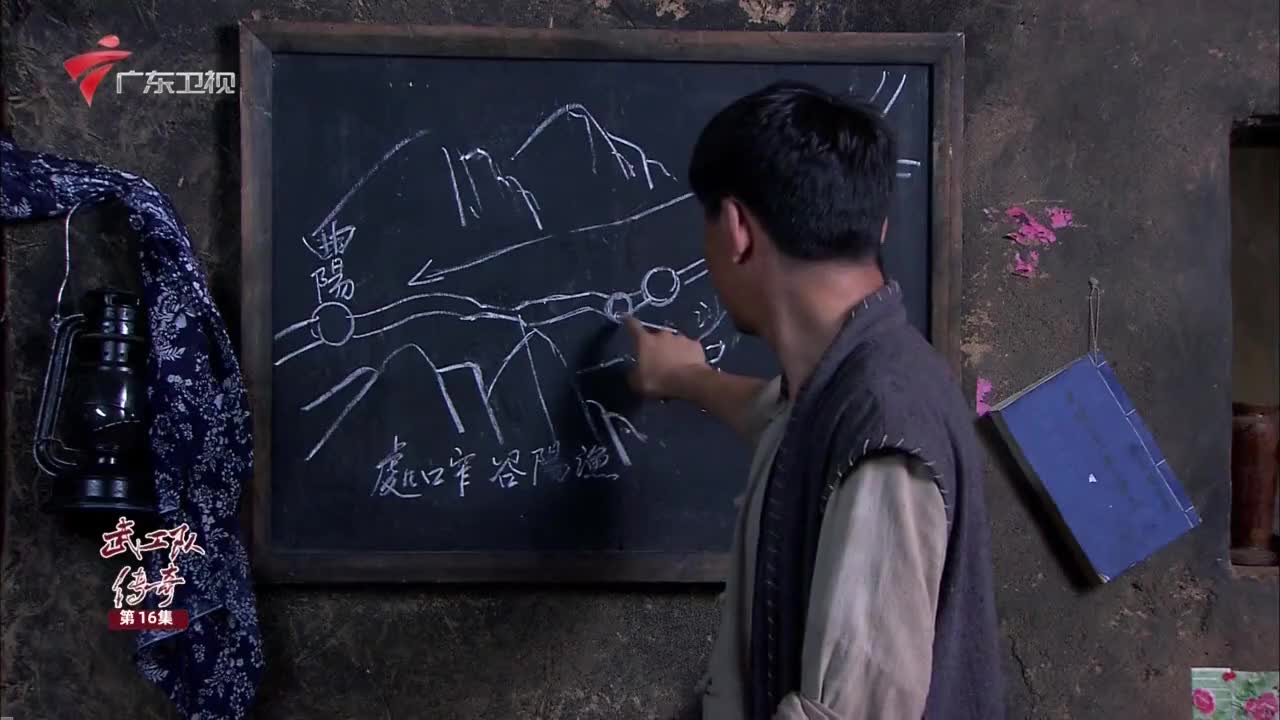 广东卫视
曲陽
處口窄谷陽漁
武工队
传奇
第16集